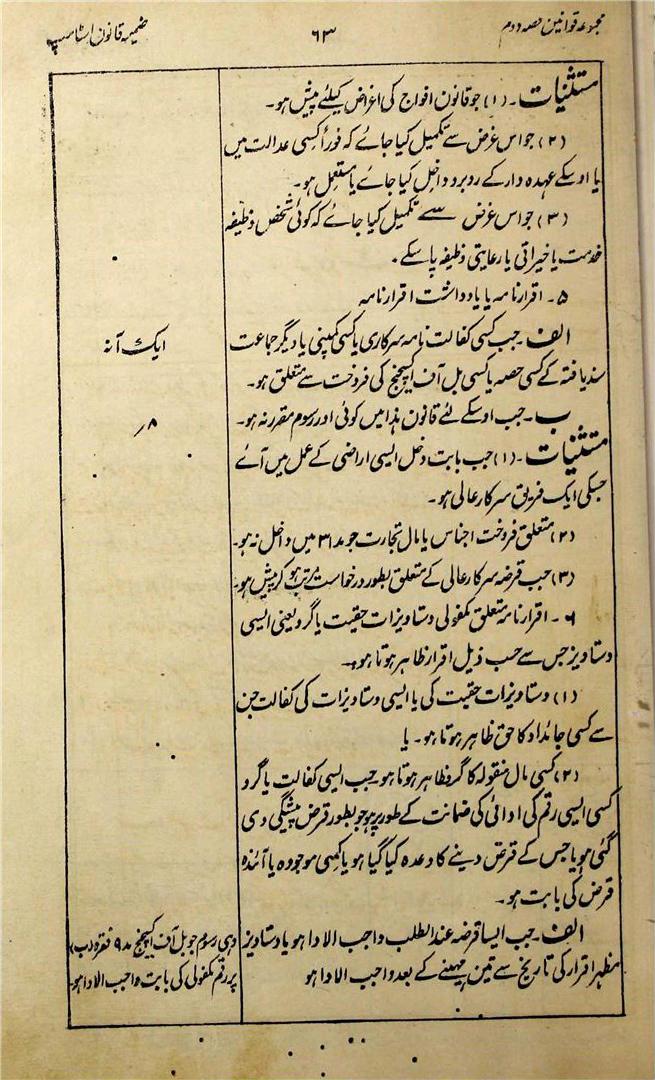 مجموعہ قوانین حصہ دوم
۶۳
ضمیمہ قانون اسٹامپ
مستثنیات۔ (۱) جو قانون افواج کی اغراض کیلئے پیش ہو۔
(۲) جو اس غرض سے تکمیل کیا جائے کہ فوراً کسی عدالت میں
یا اوسکے عہدہ دار کے روبرو داخل کیا جائے یا مستعمل ہو۔
(۳) جو اس غرض سے تکمیل کیا جائے کہ کوئی شخص وظیفہ
خدمت یا خیراتی یا رعایتی وظیفہ پا سکے۔
۵۔ اقرارنامہ یا یادداشت اقرارنامہ
الف۔ جب کسی کفالت نامہ سرکاری یا کسی کمپنی یا دیگر جماعت
ایک آنہ
سند یافتہ کے کسی حصہ یا کسی بل آف ایکسچینج کی فروخت سے متعلق ہو۔
ب۔ جب اوسکے لئے قانون ہذا میں کوئی اور رسوم مقرر نہ ہو۔
۸؍
مستثنیات۔ (۱) جب بابت دخل ایسی اراضی کے عمل میں آئے
جسکی ایک فریق سرکار عالی ہو۔
(۲) متعلق فروخت اجناس یا مال تجارت جو مد ۳۱ میں داخل نہ ہو۔
(۳) جب قرضہ سرکار عالی کے متعلق بطور درخواست مرتب ہو کر پیش ہو۔
۶۔ اقرارنامہ متعلق مکفولی دستاویزات حقیت یا گرو یعنی ایسی
دستاویز جس سے حسب ذیل اقرار ظاہر ہوتا ہو۔
(۱) دستاویزات حقیت کی یا ایسی دستاویزات کی کفالت جن
سے کسی جائداد کا حق ظاہر ہوتا ہو۔ یا
(۲) کسی مال منقولہ کا گرو ظاہر ہوتا ہو۔ جب ایسی کفالت یا گرو
کسی ایسی رقم کی ادائی کی ضمانت کے طور پر ہو جو بطور قرض پیشگی دی
گئی ہو یا جس کے قرض دینے کا وعدہ کیا گیا ہو یا کسی موجودہ یا آئندہ
قرض کی بابت ہو۔
الف۔ جب ایسا قرضہ عندالطلب واجب الادا ہو یا دستاویز
وہی رسوم جو بل آف ایکسچینج مد ۹ فقرہ (ب)
مظہر اقرار کی تاریخ سے تین مہینے کے بعد واجب الادا ہو
پر رقم مکفولی کی بابت واجب الادا ہو۔